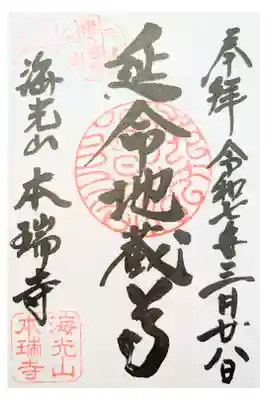 奉拝 令和七年三月廿八日
延命地蔵尊
海光山 本瑞寺
海光山
本瑞寺